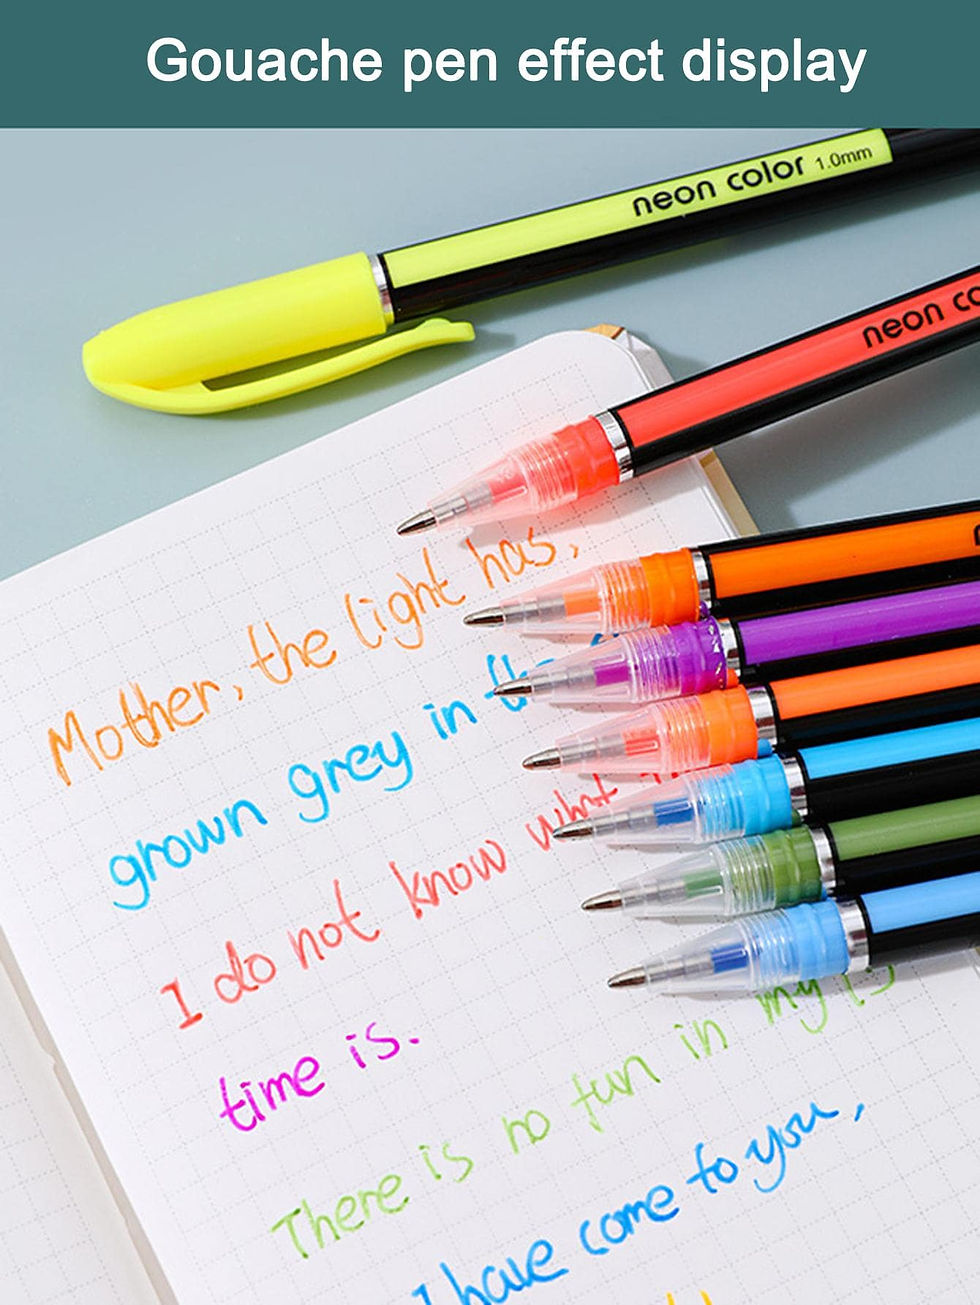 Gouache pen effect display
neon color 1.0mm
neon co
Mother, the light has,
grown grey in the
I do not know what
time is.
There is no fun in my is
I have come to you,